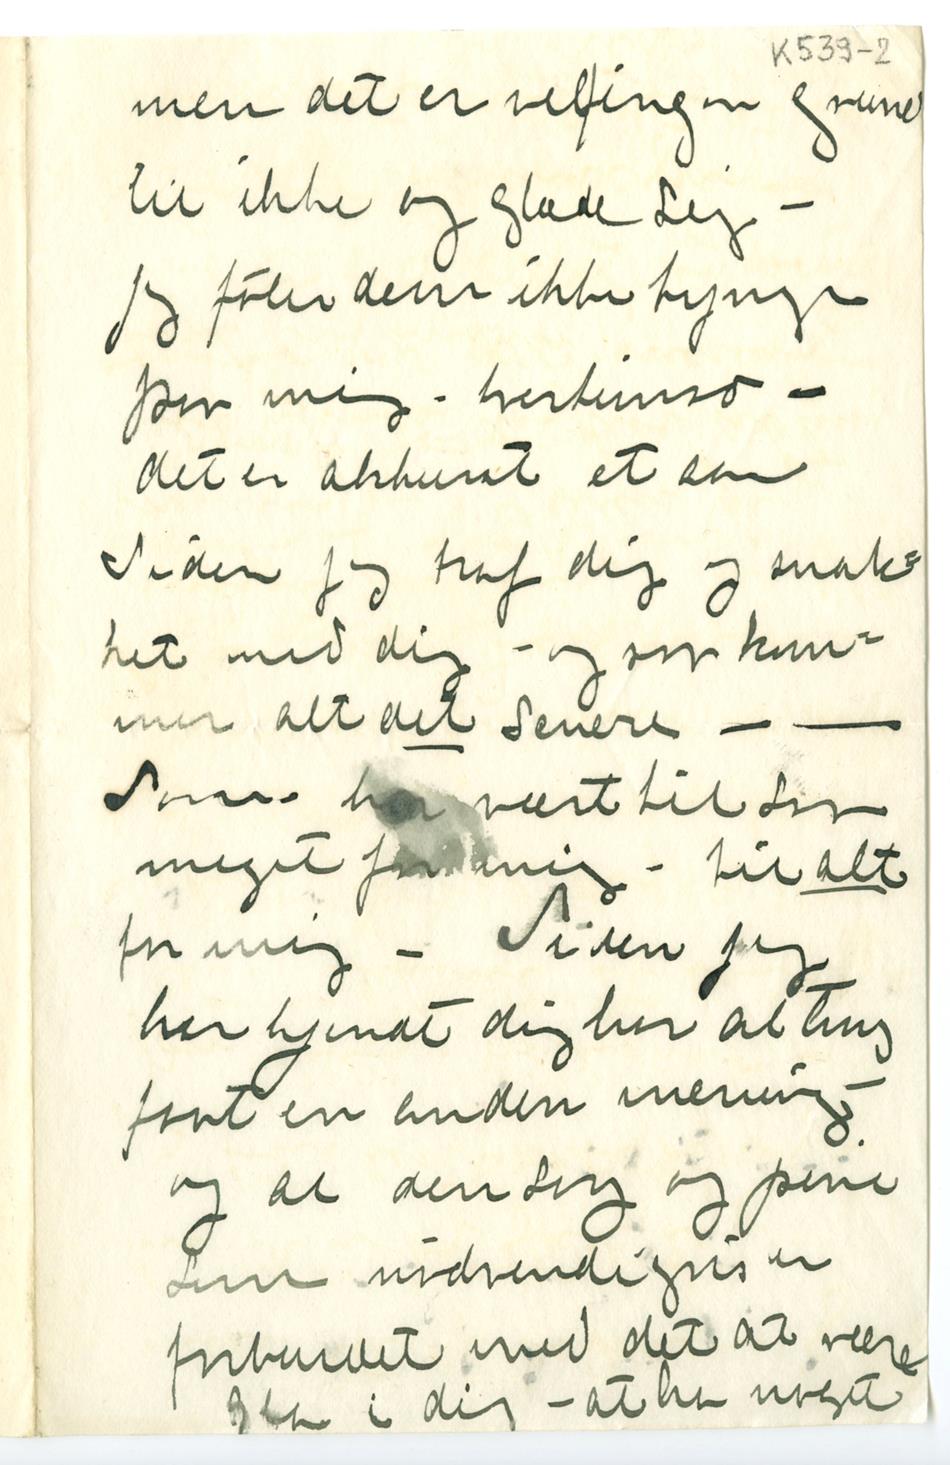 K539-2
men det er vel ingen grund
til ikke og glæde sig –
Jeg føler dem ikke tynge
paa mig - tvertimod –
det er akkurat et aar
Siden jeg traf dig og snak=
ket med dig - og saa kom=
mer alt det senere — —
Som har vært til saa
meget for mig - til alt
for mig – Siden jeg
har kjendt dig har alting
faat en anden mening –
og al den sorg og pine
som nødvendigvis er
forbundet med det at være
gla i dig – at ha noget